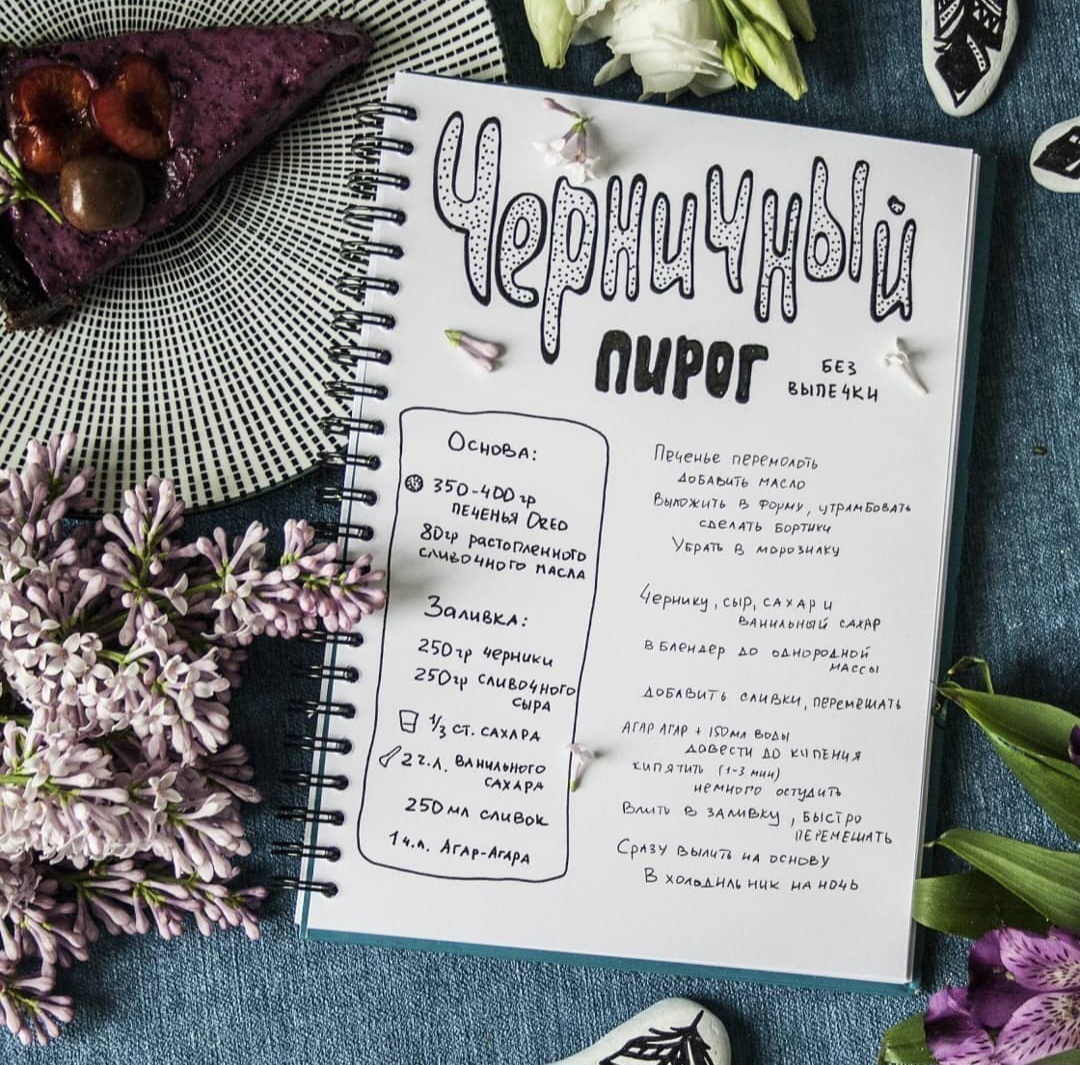 Черничный
пирог
без
выпечки
Основа:
350-400 гр
печенья Oreo
80гр растопленного
сливочного масла
Заливка:
250гр черники
250гр сливочного
сыра
1/3 ст. сахара
2 ч.л. ванильного
сахара
250 мл сливок
1 ч.л. Агар-Агара
Печенье перемолоть
добавить масло
Выложить в форму, утрамбовать
сделать бортики
Убрать в морозилку
Чернику, сыр, сахар и
ванильный сахар
в блендер до однородной
массы
добавить сливки, перемешать
Агар Агар + 150мл воды
довести до кипения
кипятить (1-3 мин)
немного остудить
Влить в заливку, быстро
перемешать
Сразу вылить на основу
В холодильник на ночь